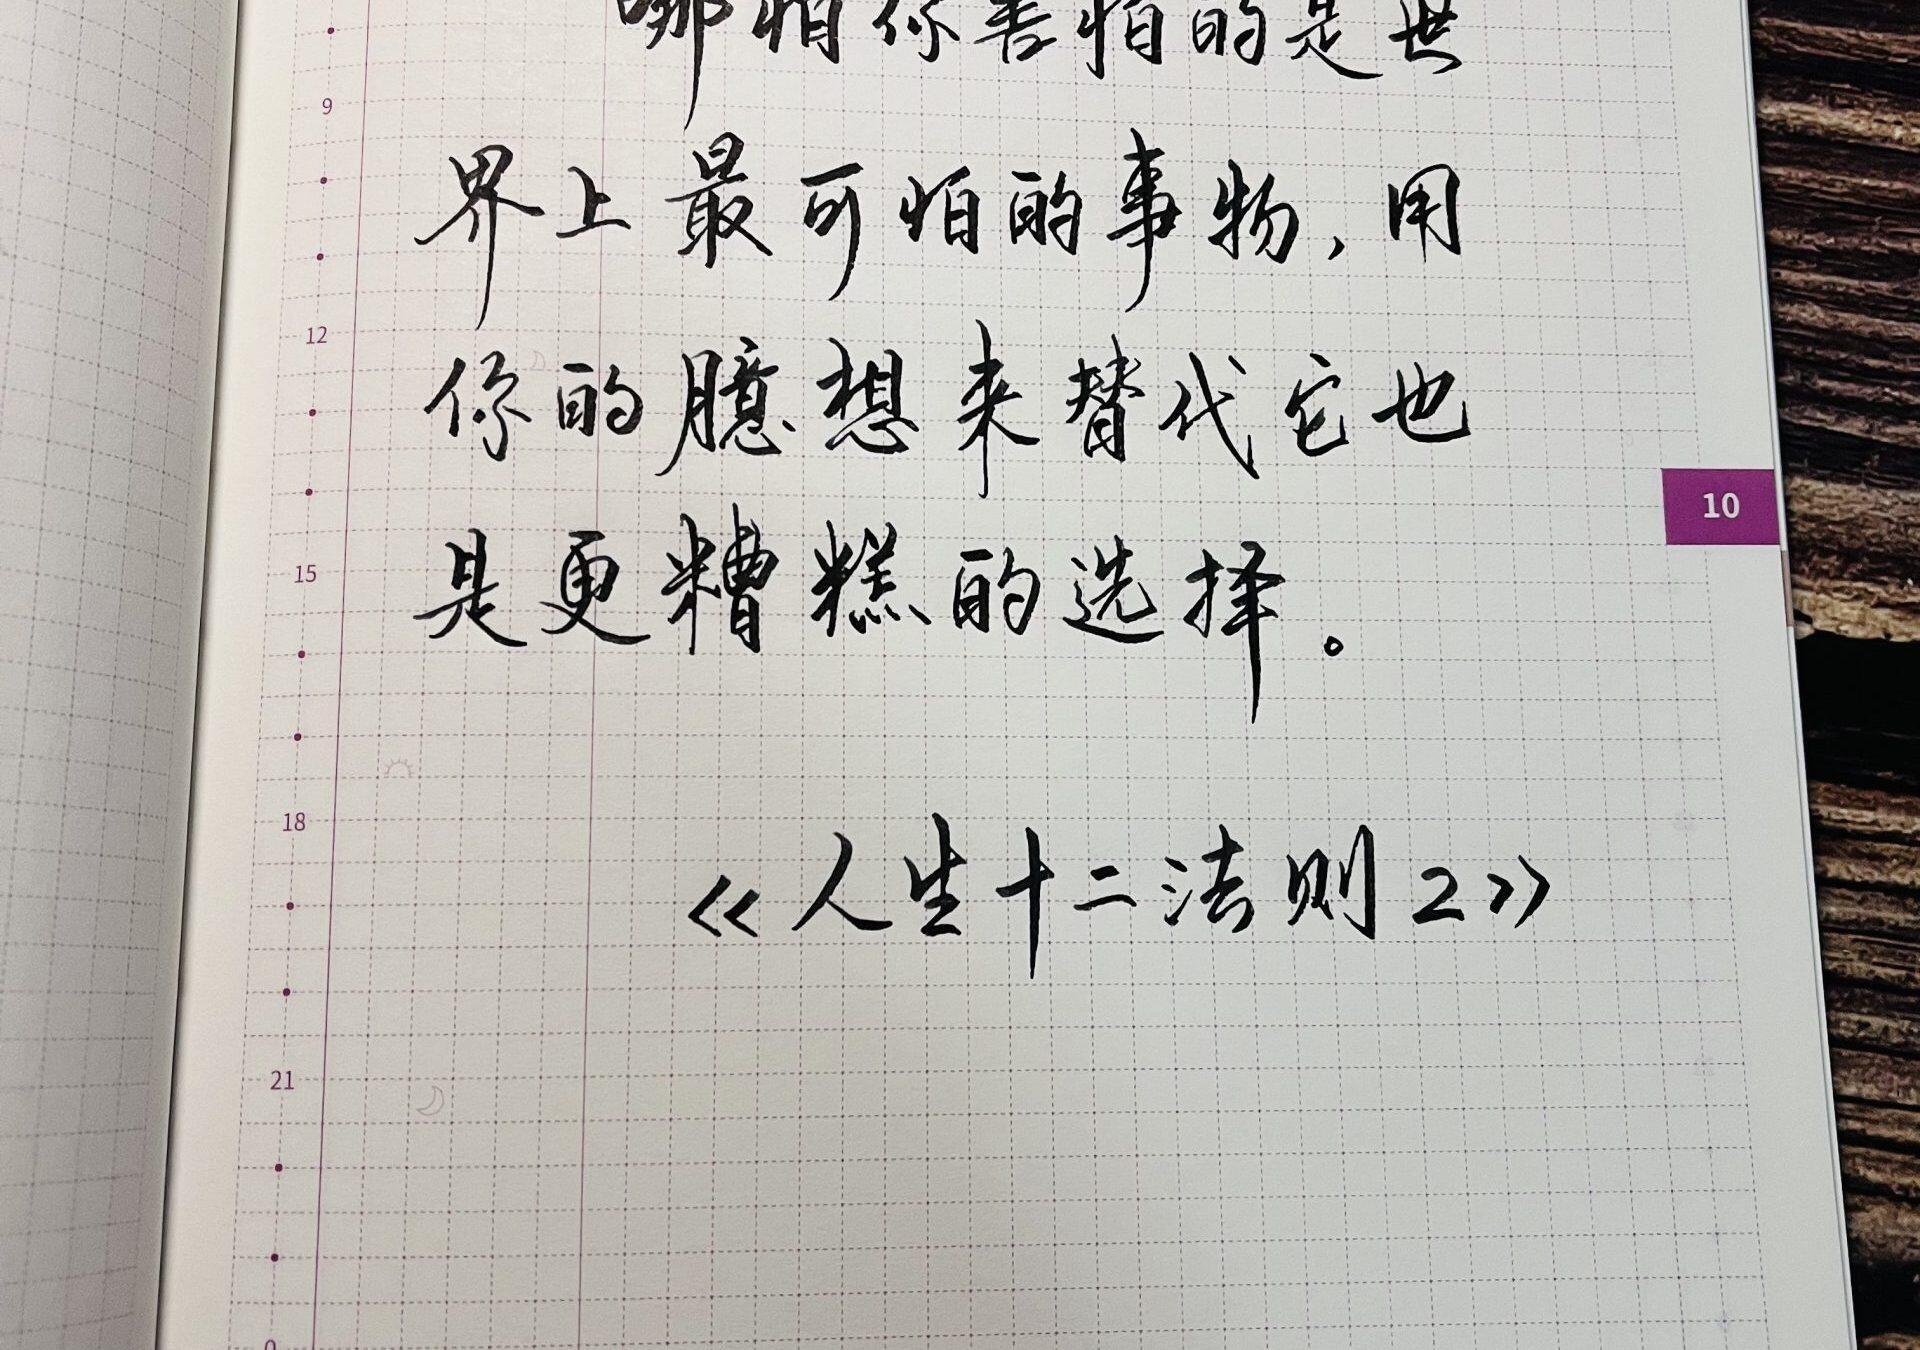 哪怕你害怕的是世
9
界上最可怕的事物，用
12
你的臆想来替代它也
10
是更糟糕的选择。
15
18
《人生十二法则2》
21
0